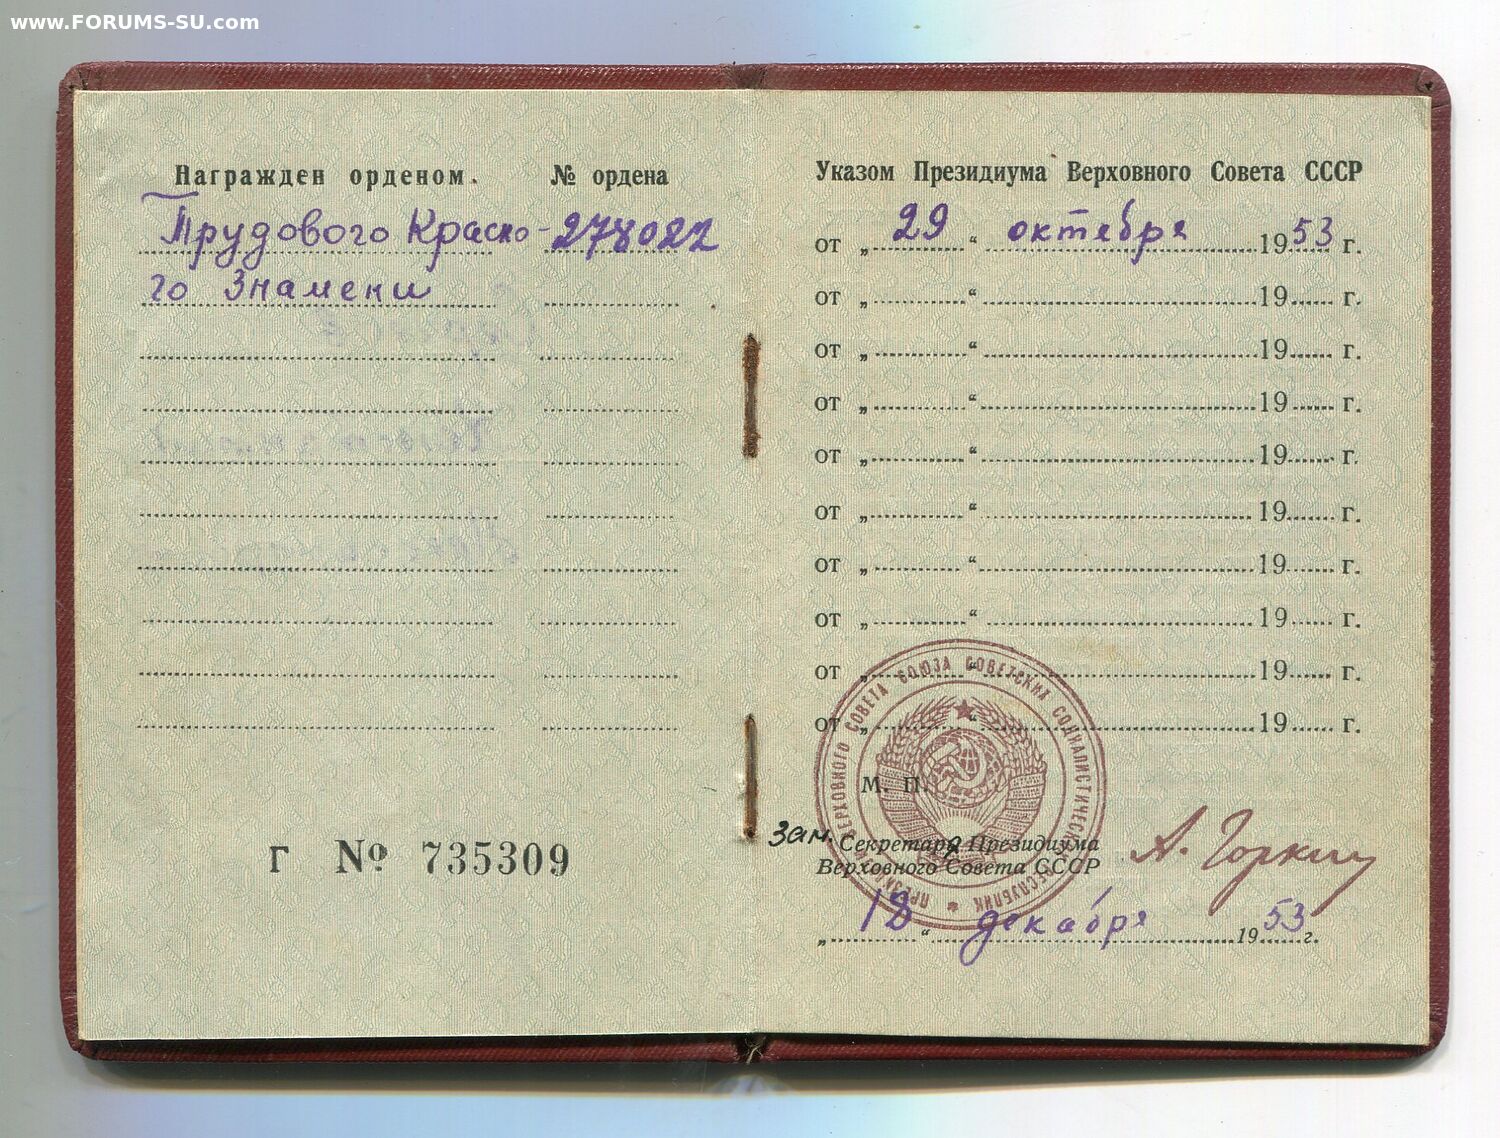 www.FORUMS-SU.com
Награжден орденом. № ордена
Трудового Красно- 278022
го Знамени
Г № 735309
Указом Президиума Верховного Совета СССР
от „ 29 “ октября 1953 г.
от „ “ 19 г.
от „ “ 19 г.
от „ “ 19 г.
от „ “ 19 г.
от „ “ 19 г.
от „ “ 19 г.
от „ “ 19 г.
от „ “ 19 г.
от „ “ 19 г.
ПРЕЗИДИУМ ВЕРХОВНОГО СОВЕТА СОЮЗА СОВЕТСКИХ СОЦИАЛИСТИЧЕСКИХ РЕСПУБЛИК
М. П.
зам. Секретаря Президиума
Верховного Совета СССР
А. Горкин
„ 18 “ декабря 1953 г.